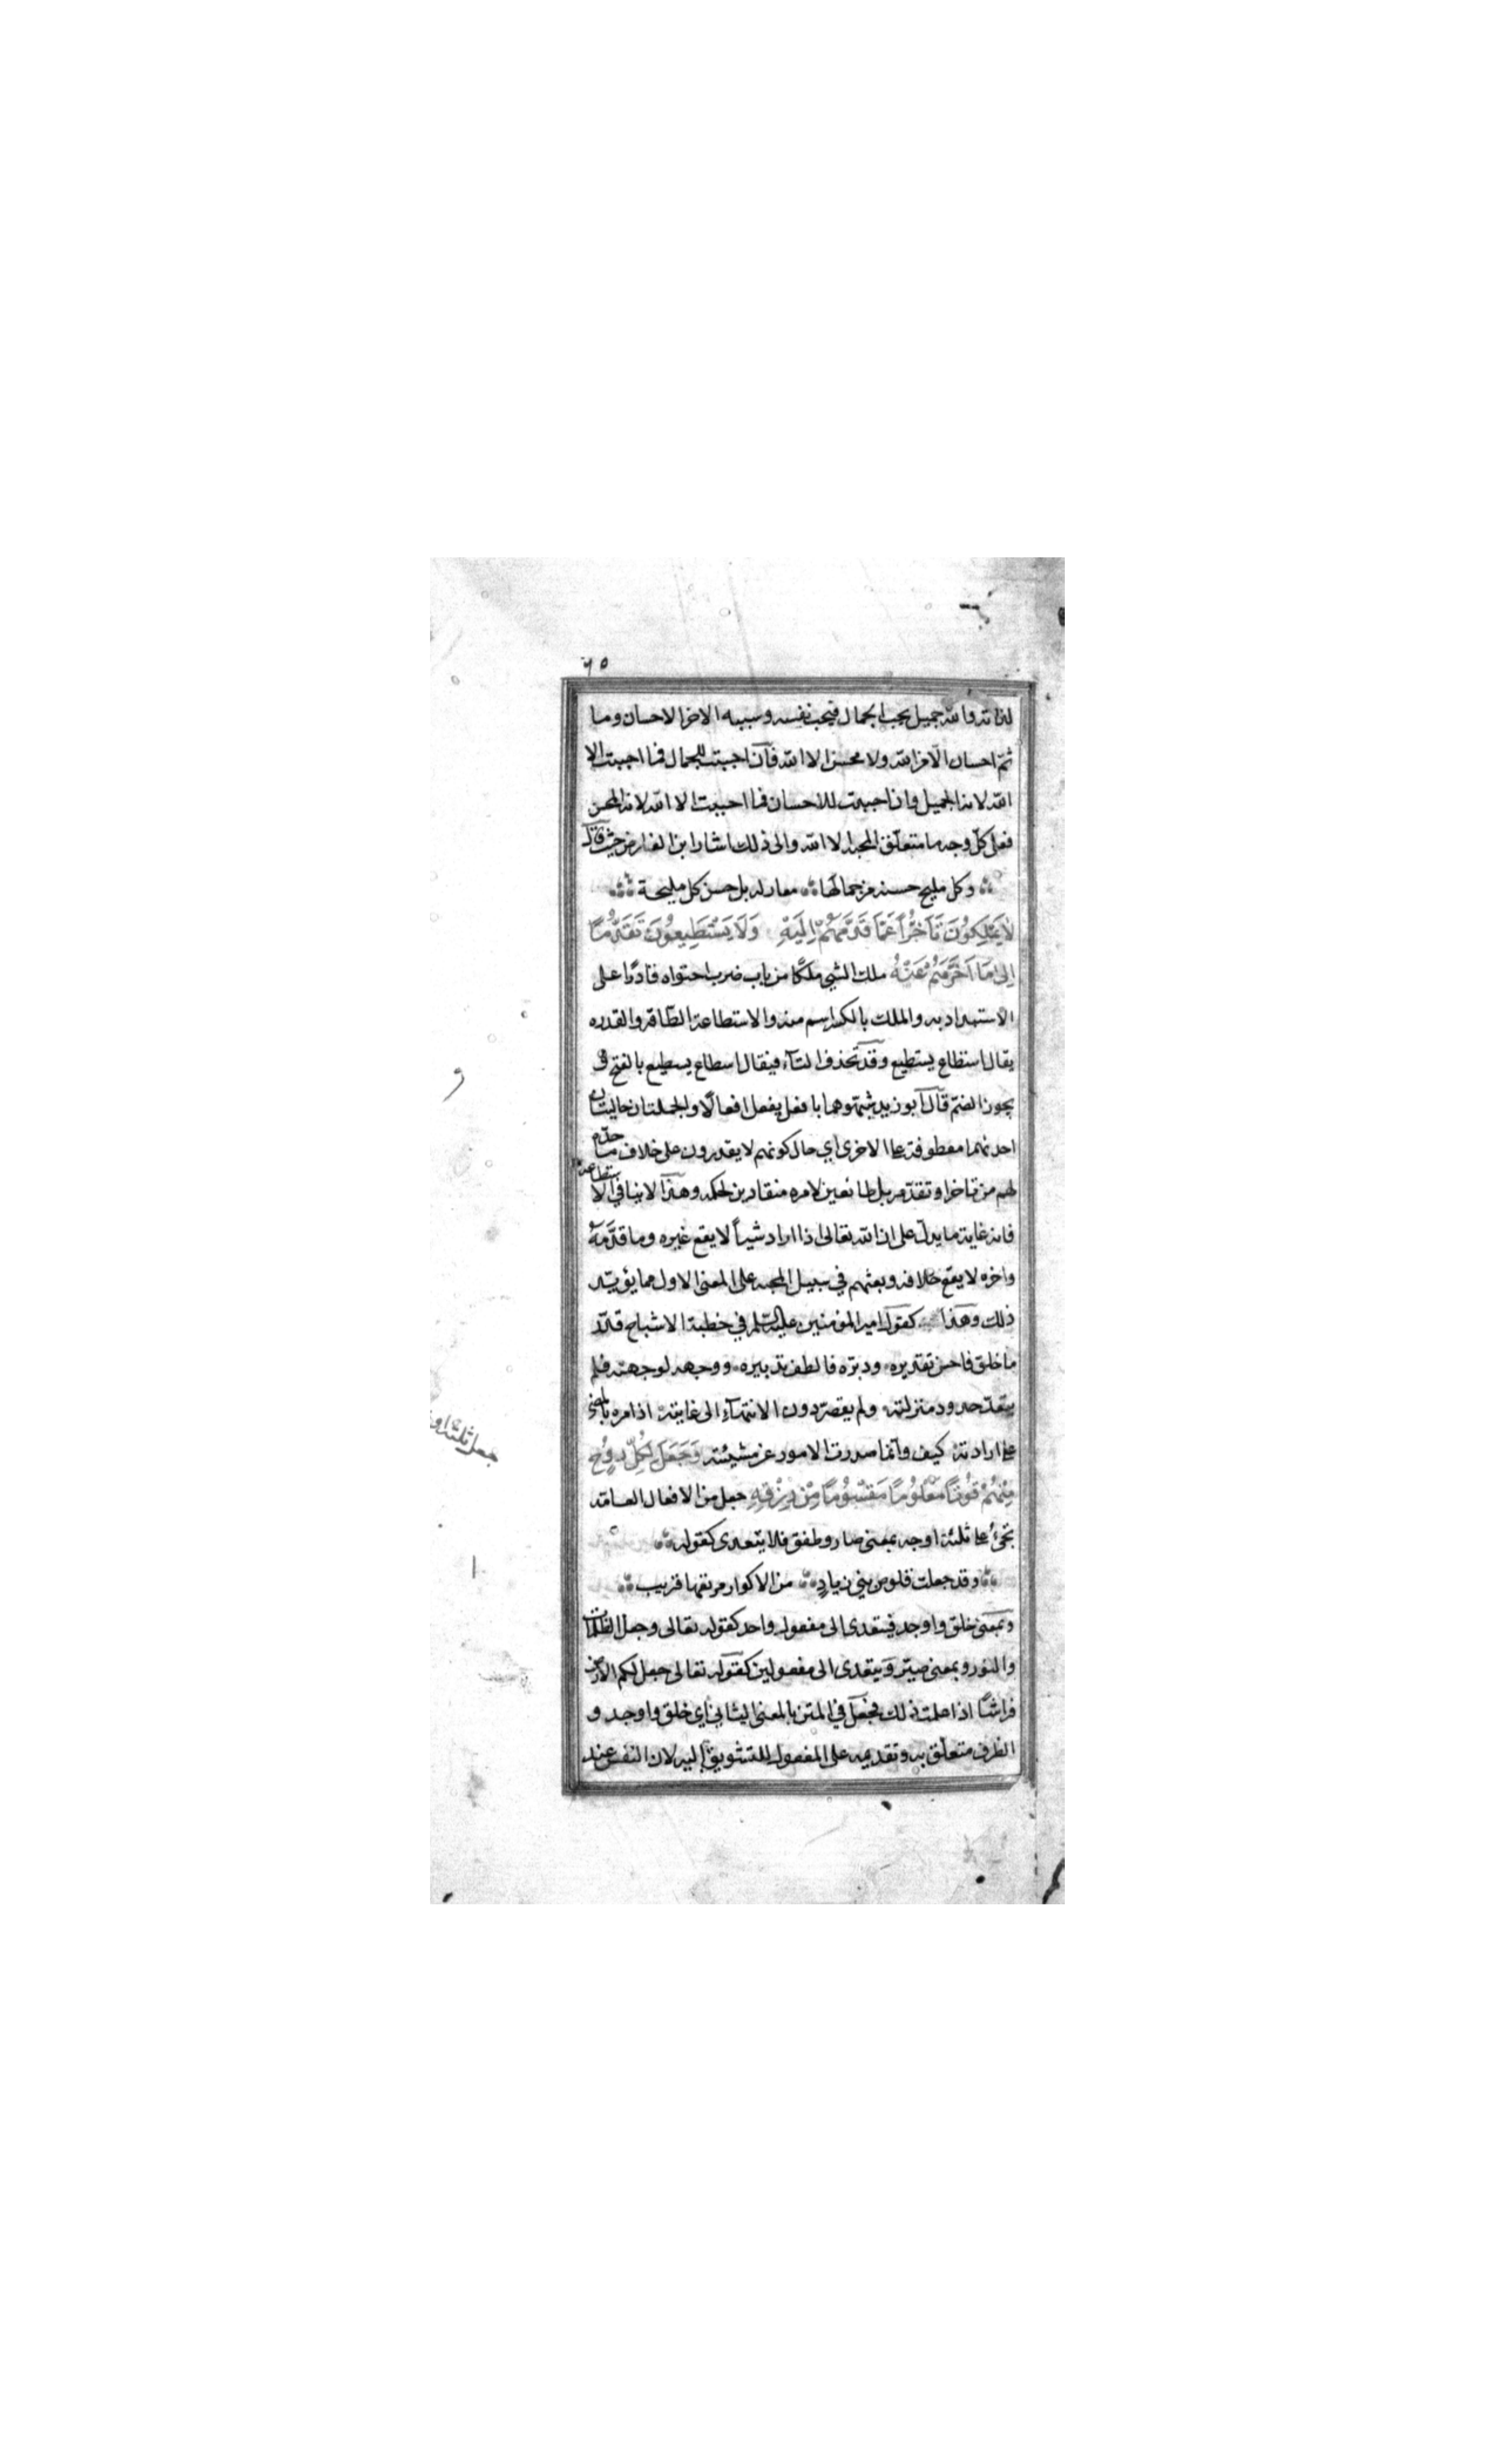 ٦٥
لذاته والله جميل يحب الجمال فيحب نفسه وسببه الاخر الاحسان وما
ثم احسان الّا من الله ولا محسن الا الله فان احببت للجمال فما احببت الا
الله لانه الجميل وان احببت للاحسان فما احببت الا الله لانه المحسن
فعلى كل وجه ما متعلق المحبة الا الله والى ذلك اشار ابن الفارض حيث قال
وكل مليح حسنه من جمالها معار له بل حسن كل مليحة
لا يَمْلِكُونَ تَأَخُّراً عَمَّا قَدَّمَهُمْ اِلَيْهِ وَلَا يَسْتَطِيعُونَ تَقَدُّمًا
اِلى مَا اَخَّرَهُمْ عَنْهُ ملك الشي ملكًا من باب ضرب احتواه قادرًا على
الاستبداد به والملك بالكسر اسم منه والاستطاعة الطّاقة والقدره
يقال استطاع يستطيع وقد تحذف التاء فيقال اسطاع يسطيع بالفتح و
يجوز الضم قال ابو زيد شبّهوهما بافعل يفعل افعالًا والجملتان حاليتان
احدىهما معطوفة على الاخرى اي حال كونهم لا يقدرون على خلاف ما حدّه
لهم من تاخر او تقدّم بل طائعين لامره منقادين لحكمه وهذا لا ينافي الاستطاعة
فانه غاية ما يدل على ان الله تعالى اذا اراد شيئاً لا يقع غيره وما قدّمه
واخره لا يقع خلافه وبعثهم في سبيل المحبه على المعنى الاول مما يؤيّد
ذلك وهذا كقول امير المؤمنين عليه السّلم في خطبة الاشباح قدّر
ما خلق فاحسن تقديره ودبّره فالطف تدبيره ووجهه لوجهته فلم
يتعدّ حدود منزلته ولم يقصّر دون الانتهاء الى غايته اذ امره بالمضي
على ارادته كيف وانما صدرت الامور عن مشيئته وَجَعَلَ لِكُلِّ رُوحٍ
مِنْهُمْ قُوتًا مَعْلُومًا مَقْسُومًا مِنْ رِزْقِهِ جعل من الافعال العامّه
تجيُ على ثلثة اوجه بمعنى صار وطفق فلا يتعدى كقوله
وقد جعلت قلوص بني زيادٍ من الاكوار مرتعها قريب
وبمعنى خلق واوجد فيتعدى الى مفعول واحد كقوله تعالى وجعل الظلمات
والنور وبمعنى صيّر ويتعدى الى مفعولين كقوله تعالى جعل لكم الارض
فراشًا اذا علمت ذلك فجعل في المتن بالمعنى الثاني اي خلق واوجد و
الظرف متعلّق به وتقديمه على المفعول للتشويق اليه لان النفس عند
و
جعل ثلثة